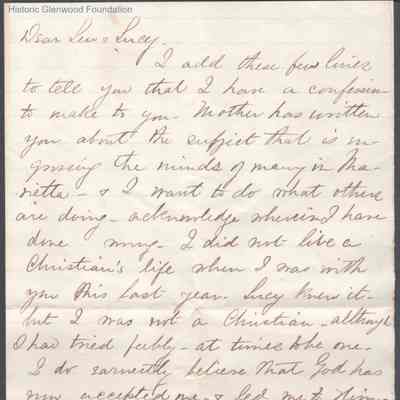 Historic Glenwood Foundation
Dear Lew & Lucy.
I add these few lines
to tell you that I have a confession
to make to you. Mother has written
you about the subject that is en-
grossing the minds of many in Ma-
rietta - & I want to do what others
are doing - acknowledge wherein I have
done wrong - I did not live a
Christian's life when I was with
you this last year. Lucy knew it -
but I was not a Christian - although
I had tried feebly - at times to be one -
I do earnestly believe that God has
now accepted me - & led me to Him-